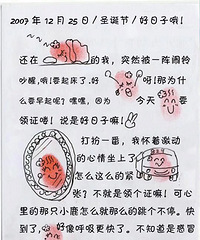 2007年12月25日/圣诞节/好日子哦!
还在 的我,突然被一阵闹铃
吵醒,哦!要起床了.好 呀!那为什
么要早起呢?嘿嘿,因为 今天 要
领证唔!说是好日子嘛!
打扮一番,我怀着激动
的心情坐上了
怎么这么的紧
张?不就是领个证嘛!可心
里的那只小鹿怎么就那么的跳个不停。快
到了, 好像呼吸更快了。不知道是感冒